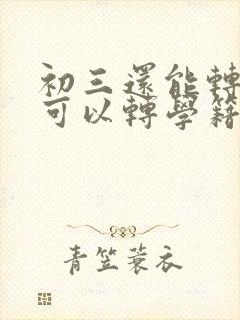 初三還能轉
可以轉學籍
青笠蓑衣